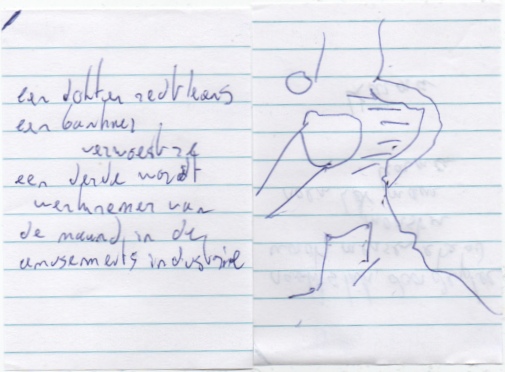 een dokter redt levens
een bankier
verwoest ze
een derde wordt
werknemer van
de maand in de
amusements industrie